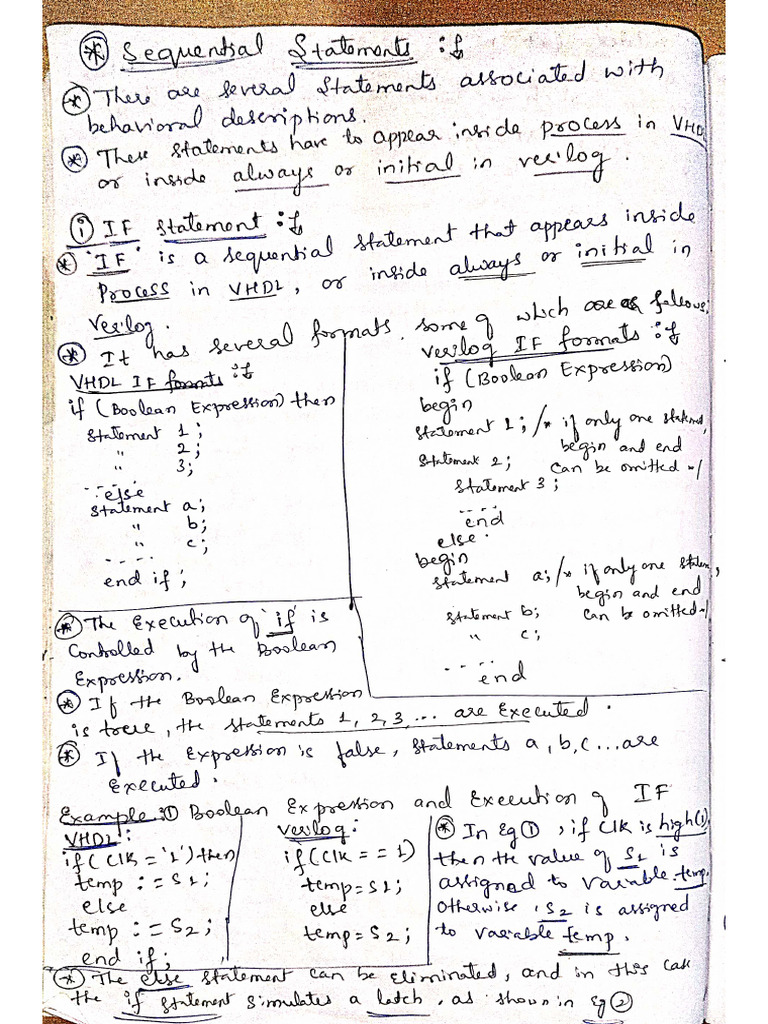 * Sequential Statements :-
* There are several statements associated with
behavioral descriptions.
* These statements have to appear inside process in VHDL
or inside always or initial in verilog.
i IF statement :-
* 'IF' is a sequential statement that appears inside
Process in VHDL, or inside always or initial in
Verilog.
* It has several formats. some of which are as follows:
VHDL IF formats :-
if (Boolean Expression) then
statement 1;
" 2;
" 3;
.....
else
statement a;
" b;
" c;
.....
end if;
verilog IF formats :-
if (Boolean Expression)
begin
statement 1; /* if only one statement,
begin and end
can be omitted */
statement 2;
statement 3;
.....
end
else
begin
statement a; /* if only one statem,
begin and end
can be omitted */
statement b;
" c;
.....
end
* The Execution of 'if' is
Controlled by the Boolean
Expression.
* If the Boolean Expression
is true, the statements 1, 2, 3, ... are Executed.
* If the Expression is false, statements a, b, c ... are
Executed.
Example :① Boolean Expression and Execution of IF
VHDL:
if (clk = '1') then
temp := S1;
else
temp := S2;
end if;
verilog:
if (clk == 1)
temp = S1;
else
temp = S2;
* In Eg ①, if clk is high(1)
then the value of S1 is
assigned to variable temp.
otherwise, S2 is assigned
to variable temp.
* The else statement can be eliminated, and in this case
the if statement simulates a latch, as shown in Eg ②